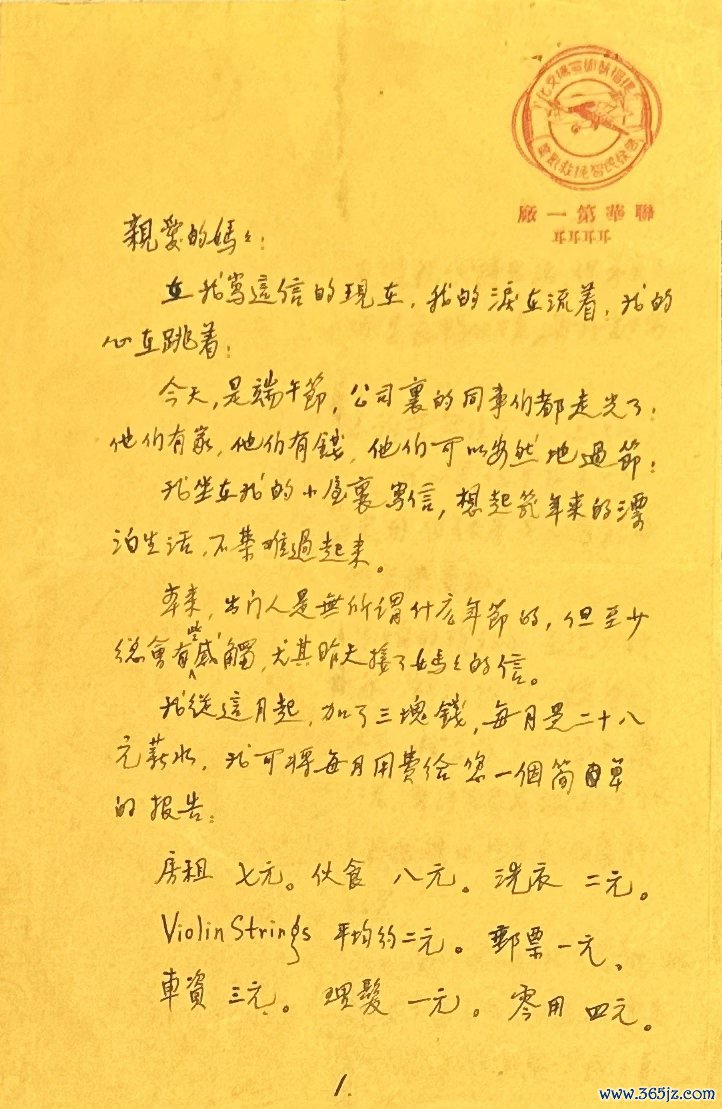 提倡藝術宣揚文化
啟發民智挽救影業
聯華第一廠
親愛的媽々：
在我寫這信的現在，我的淚在流着，我的
心在跳着；
今天，是端午節，公司裏的同事们都走光了；
他们有家，他们有錢，他们可以安然地過節；
我坐在我的小屋裏寫信，想起幾年來的漂
泊生活，不禁难過起来。
本来，出门人是無所谓什么年節的，但至少
總會有些感觸，尤其昨天接了媽々的信。
我從這月起，加了三塊錢，每月是二十八
元薪水，我可將每月用費给您一個简單
的报告：
房租 七元。伙食 八元。洗衣 二元。
Violin Strings 平均約二元。郵票一元、
車資 三元。理髮 一元。零用 四元。
1.
www.365jz.com